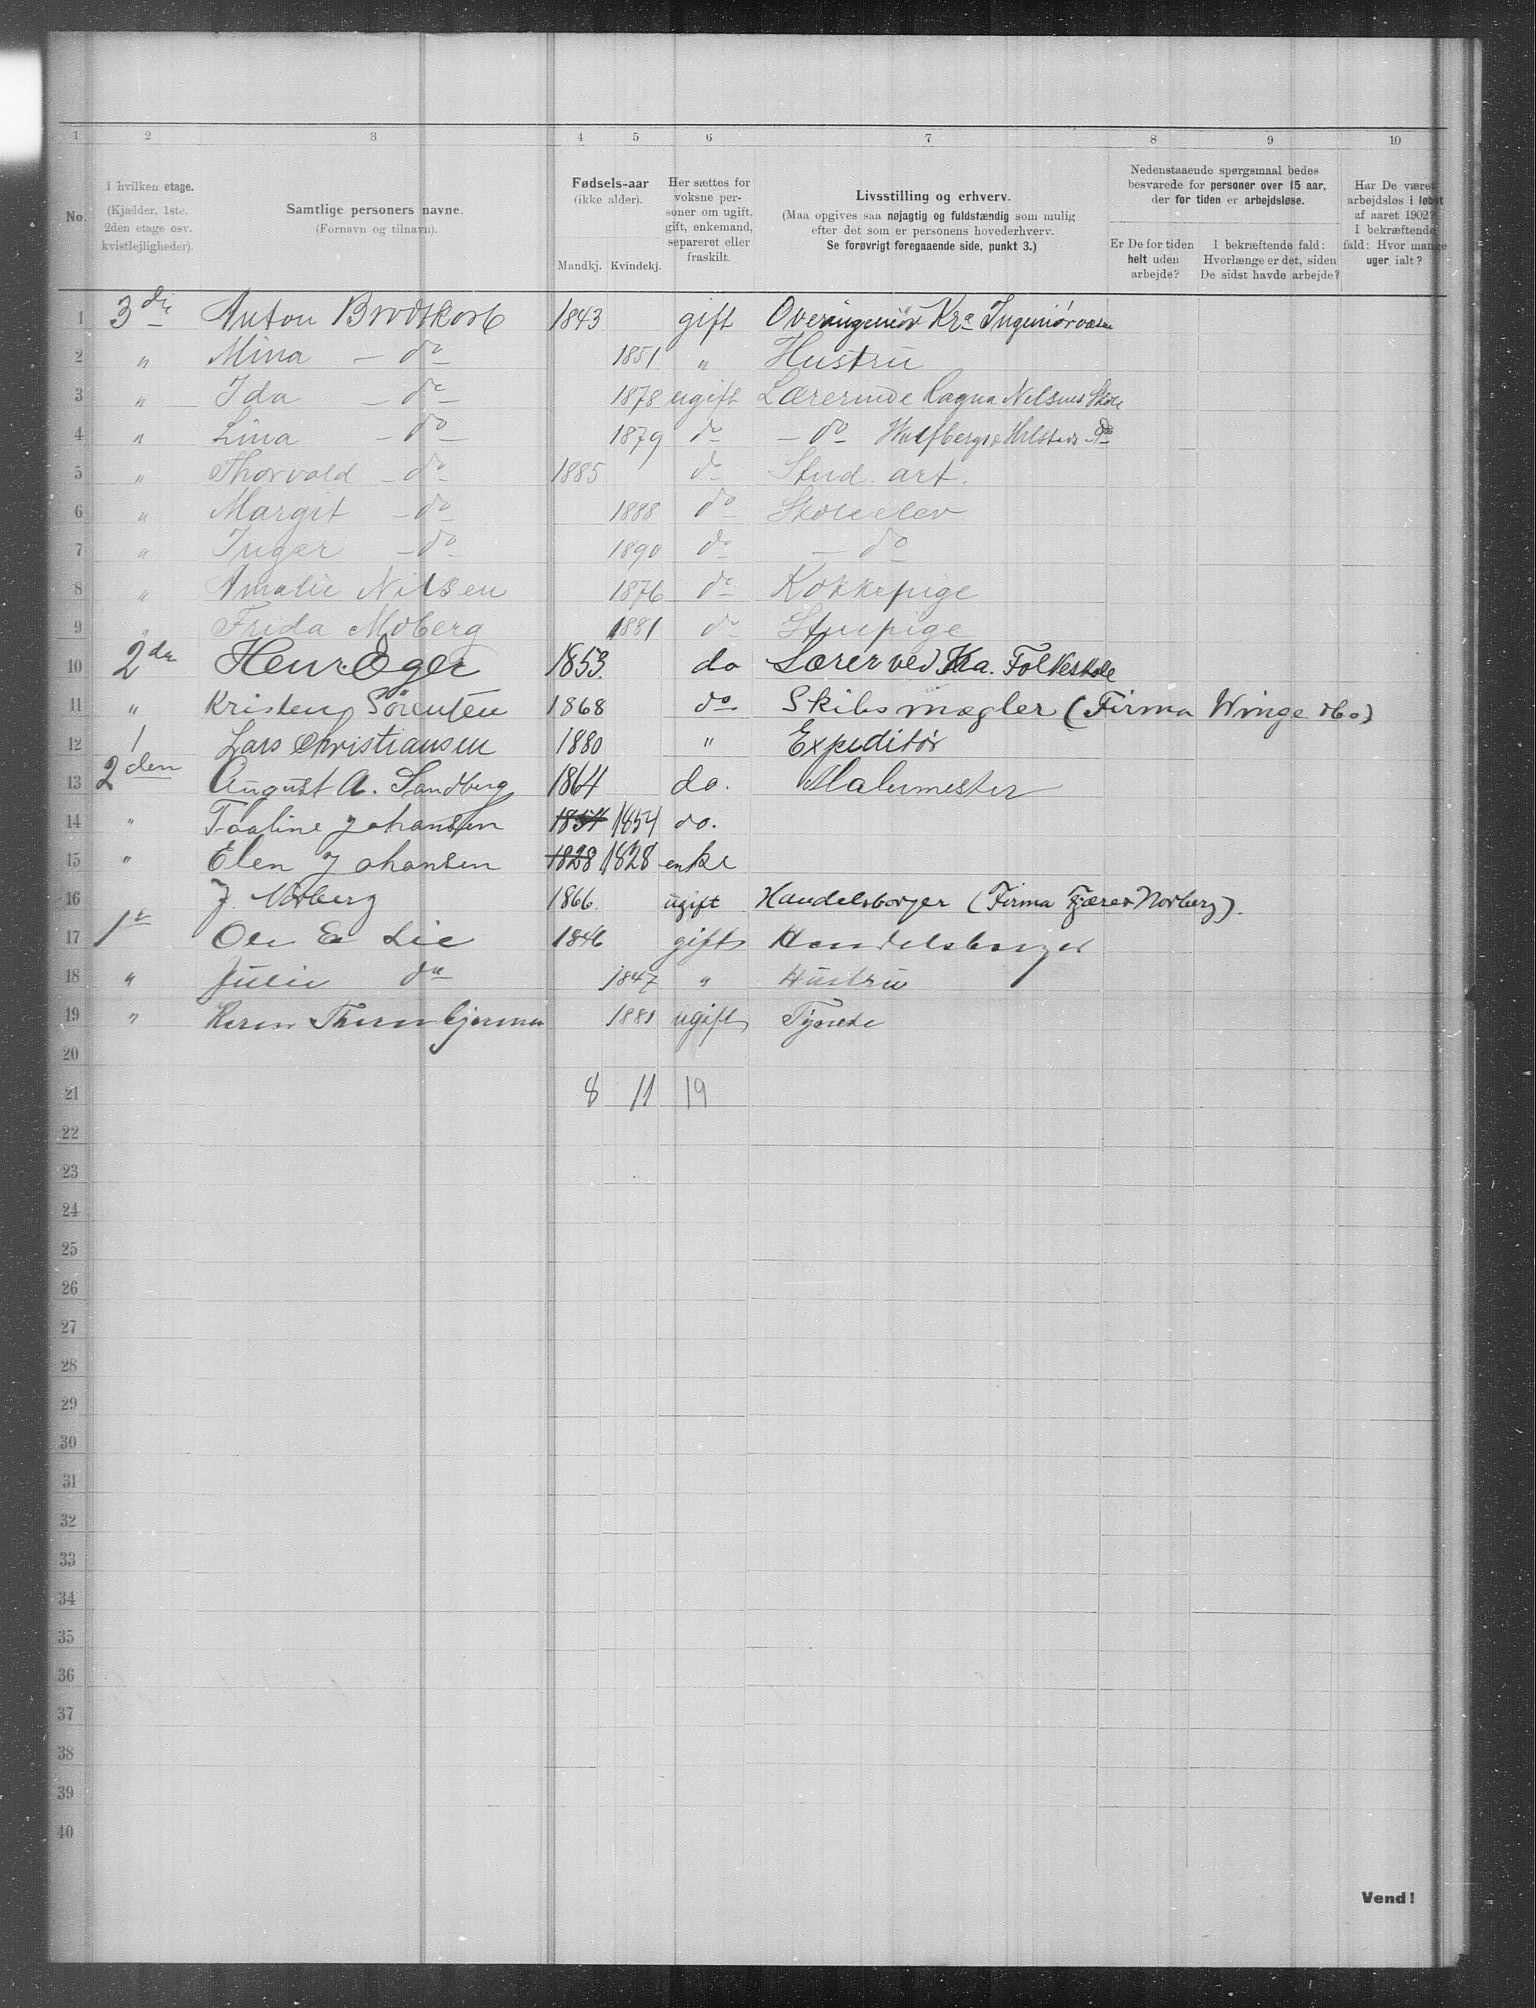 1 2 3 4 5 6 7 8 9 10
No.
I hvilken etage.
(Kjælder, 1ste,
2den etage osv.
kvistlejligheder).
Samtlige personers navne.
(Fornavn og tilnavn).
Fødsels-aar
(ikke alder).
Mandkj. Kvindekj.
Her sættes for
voksne per-
soner om ugift,
gift, enkemand,
separeret eller
fraskilt.
Livsstilling og erhverv.
(Maa opgives saa nøjagtig og fuldstændig som mulig
efter det som er personens hovederhverv.
Se forøvrigt foregaaende side, punkt 3.)
Nedenstaaende spørgsmaal bedes
besvarede for personer over 15 aar,
der for tiden er arbejdsløse.
Er De for tiden
helt uden
arbejde?
I bekræftende fald:
Hvorlænge er det, siden
De sidst havde arbejde?
Har De været
arbejdsløs i løbet
af aaret 1902?
I bekræftende
fald: Hvor mange
uger ialt?
1 3die Anton Brodtkorb 1843 gift Overingeniør Kra Ingeniørvæsen
2 " Mina — do — 1851 " Hustru
3 " Ida — do — 1878 ugift Lærerinde Ragna Nilsens Skole
4 " Lina — do — 1879 do — do — do
5 " Thorvald — do — 1885 do Stud. art.
6 " Margit — do — 1888 do Skoleelev
7 " Inger — do — 1890 do — do
8 " Amalie Nilsen 1876 do Kokkepige
9 " Frida Moberg 1881 do Stuepige
10 2den Henr. Eger 1853. do Lærer ved Kra. Folkeskole
11 " Kristen Sørensen 1868 do Skibsmægler (Firma Winge & Co)
12 1 Lars Christiansen 1880 " Expeditør
13 2den August A. Sandberg 1864 do. Malermester
14 " Johansen 1854 1854 do.
15 " Elen Johansen 1828 1828 enke
16 J. Norberg 1866. ugift Handelsborger (Firma Norberg).
17 1e Ole E Lie 1846 gift Handelsborger
18 " Julie do 1847 " Hustru
19 " 1881 ugift Tjeneste
20
21 8 11 19
22
23
24
25
26
27
28
29
30
31
32
33
34
35
36
37
38
39
40
Vend!